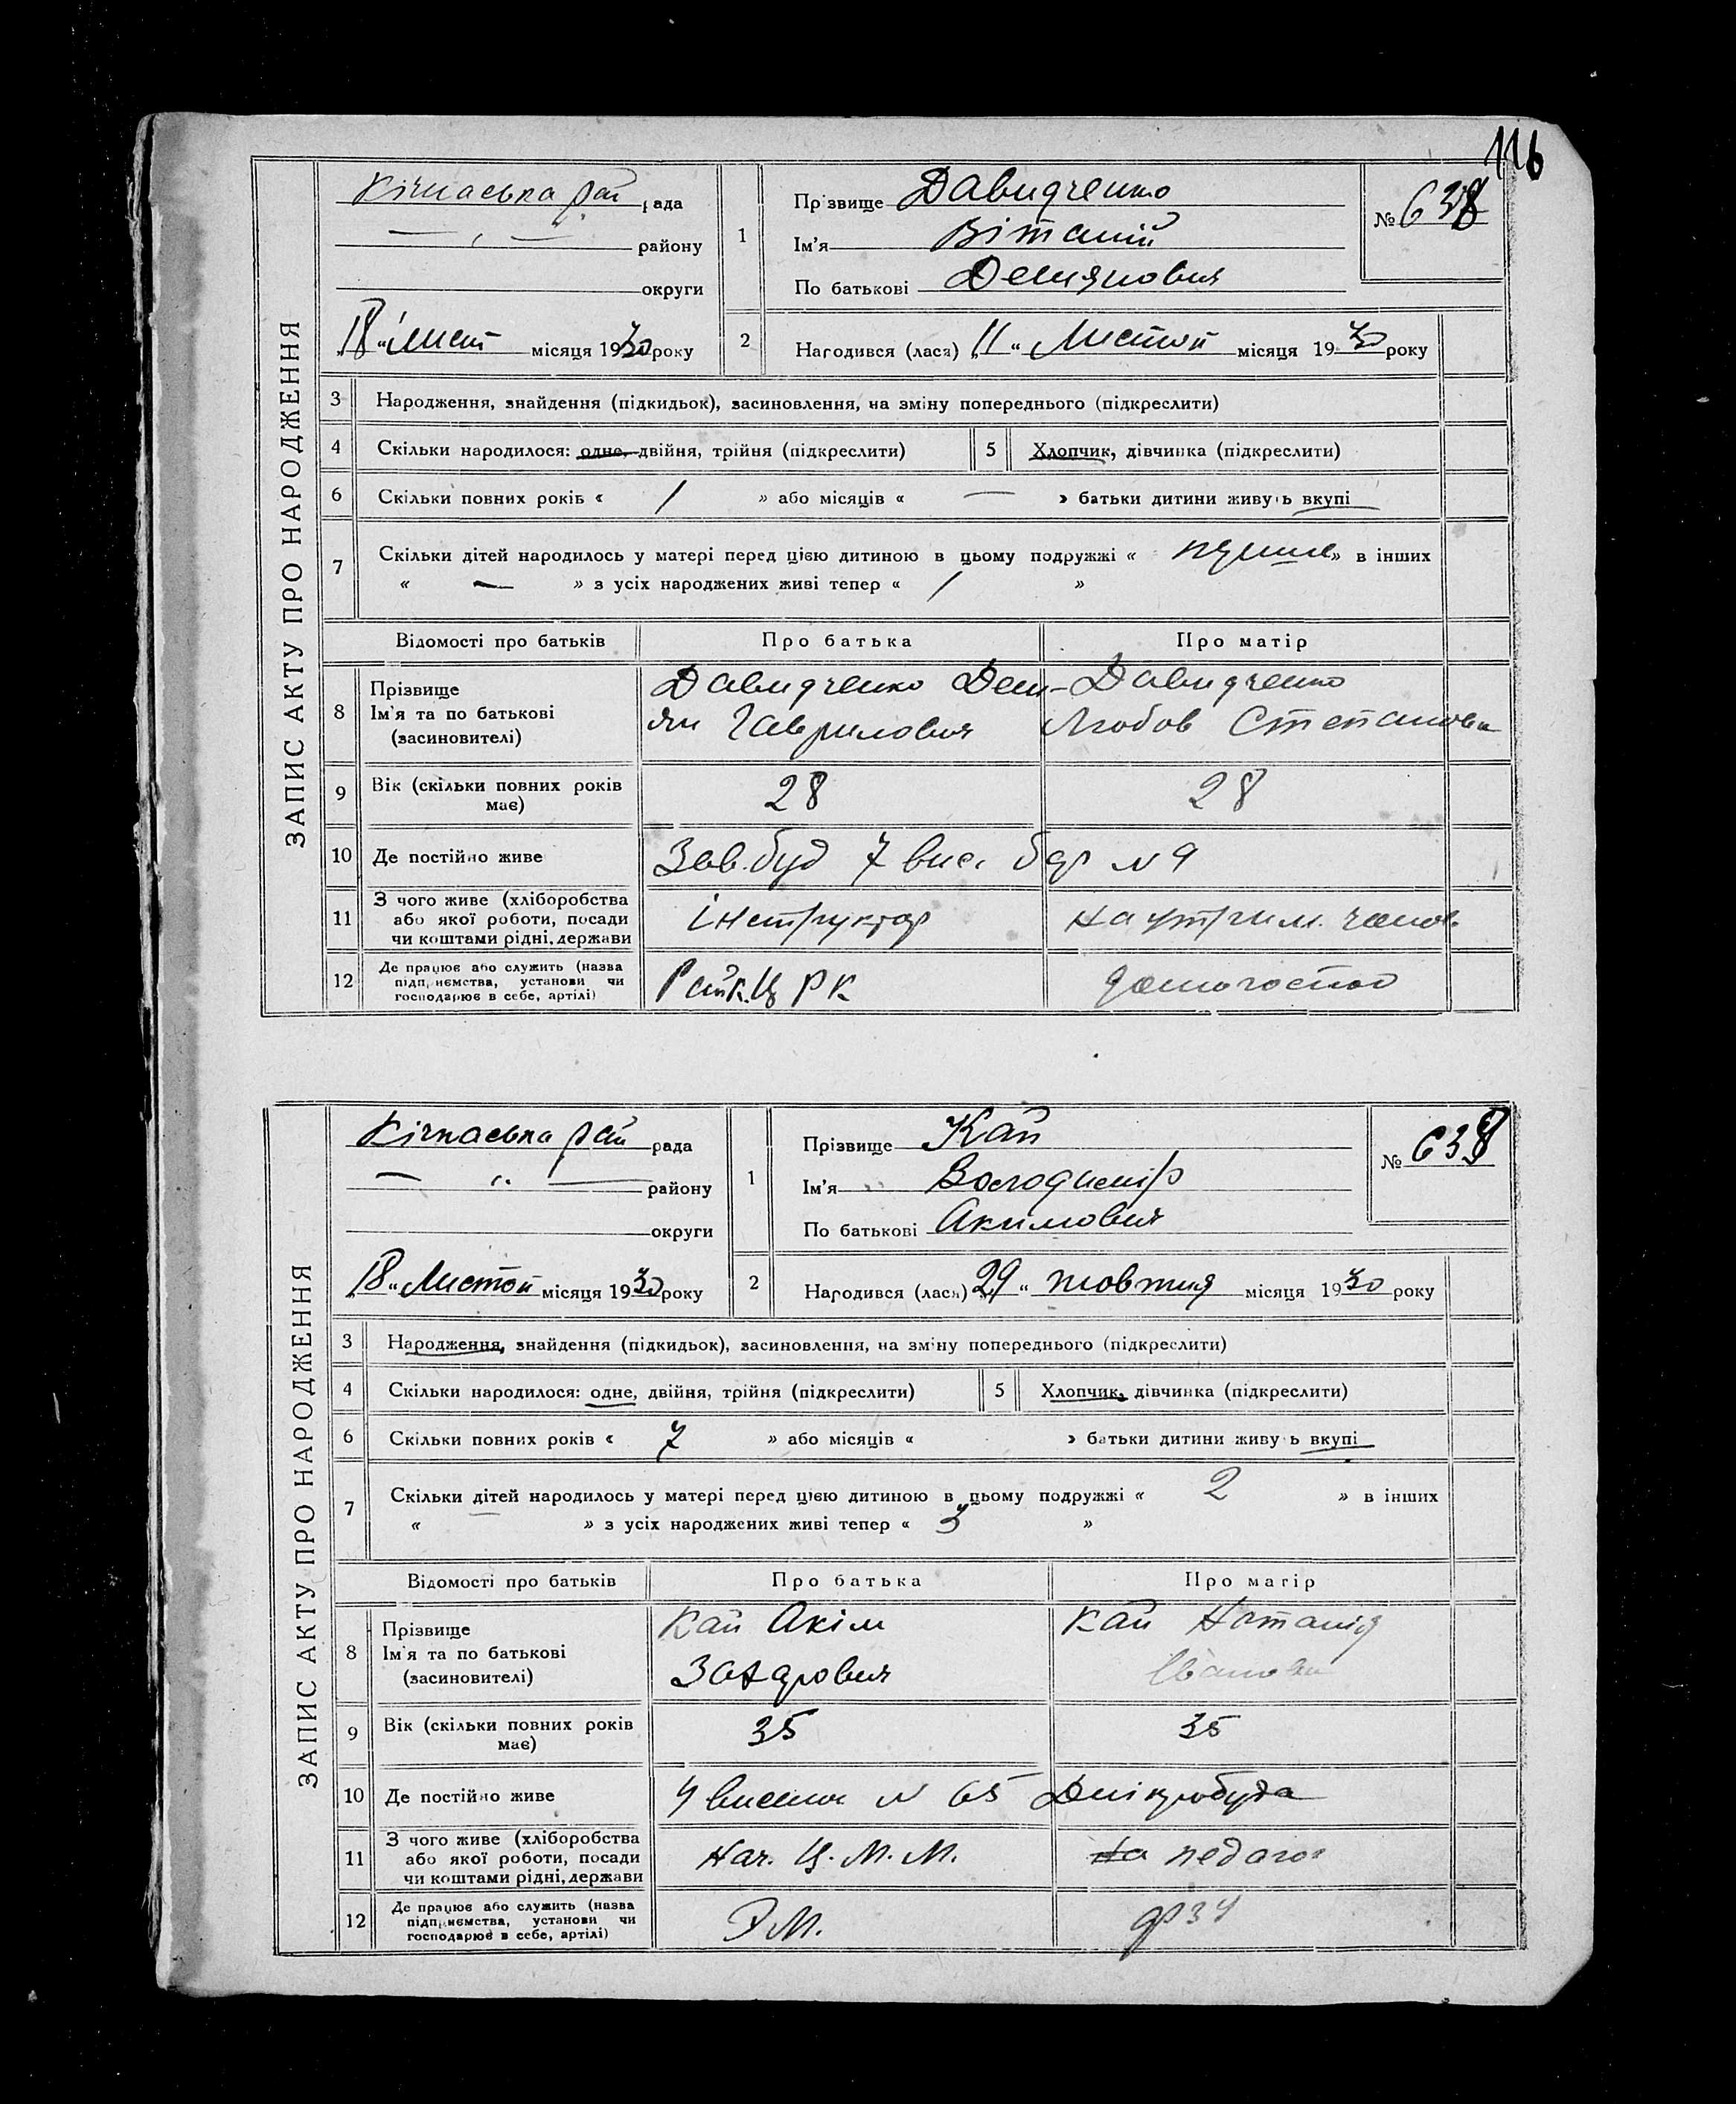 116
ЗАПИС АКТУ ПРО НАРОДЖЕННЯ
Кічкаська рай рада
— „ — району
округи
„18“ Лист місяця 1930 року
1 Прізвище Давидченко
Ім'я Віталій
По батькові Демянович
№ 638
2 Народився (лася) „11“ Листоп місяця 1930 року
3 Народження, знайдення (підкидьок), засиновлення, на зміну попереднього (підкреслити)
4 Скільки народилося: одне, двійня, трійня (підкреслити) 5 Хлопчик, дівчинка (підкреслити)
6 Скільки повних років « 1 » або місяців « — » батьки дитини живуть вкупі
7 Скільки дітей народилось у матері перед цією дитиною в цьому подружжі « перше » в інших
« — » з усіх народжених живі тепер « 1 »
Відомості про батьків Про батька Про матір
8 Прізвище
Ім'я та по батькові
(засиновителі)
Давидченко Дем-
ян Гаврилович
Давидченко
Любов Степановна
9 Вік (скільки повних років
має) 28 28
10 Де постійно живе 7 вис. N 9
11 З чого живе (хліборобства
або якої роботи, посади
чи коштами рідні, держави
інструктор на утрим. чолов.
12 Де працює або служить (назва
підприємства, установи чи
господарює в себе, артілі)
Райк. Ц Р К домогоспод
ЗАПИС АКТУ ПРО НАРОДЖЕННЯ
Кічкаська рай рада
— „ — району
округи
„18“ Листоп місяця 1930 року
1 Прізвище Кай
Ім'я Володимір
По батькові Акимович
№ 639
2 Народився (лася) „29“ жовтня місяця 1930 року
3 Народження, знайдення (підкидьок), засиновлення, на зміну попереднього (підкреслити)
4 Скільки народилося: одне, двійня, трійня (підкреслити) 5 Хлопчик, дівчинка (підкреслити)
6 Скільки повних років « 7 » або місяців « » батьки дитини живуть вкупі
7 Скільки дітей народилось у матері перед цією дитиною в цьому подружжі « 2 » в інших
« — » з усіх народжених живі тепер « 3 »
Відомості про батьків Про батька Про матір
8 Прізвище
Ім'я та по батькові
(засиновителі)
Кай Акім
Захарович
Кай Наталія
Івановна
9 Вік (скільки повних років
має) 35 35
10 Де постійно живе N 65 Дніпробуда
11 З чого живе (хліборобства
або якої роботи, посади
чи коштами рідні, держави
Нач. Ц. М. М. на педагог
12 Де працює або служить (назва
підприємства, установи чи
господарює в себе, артілі)
ФЗУ